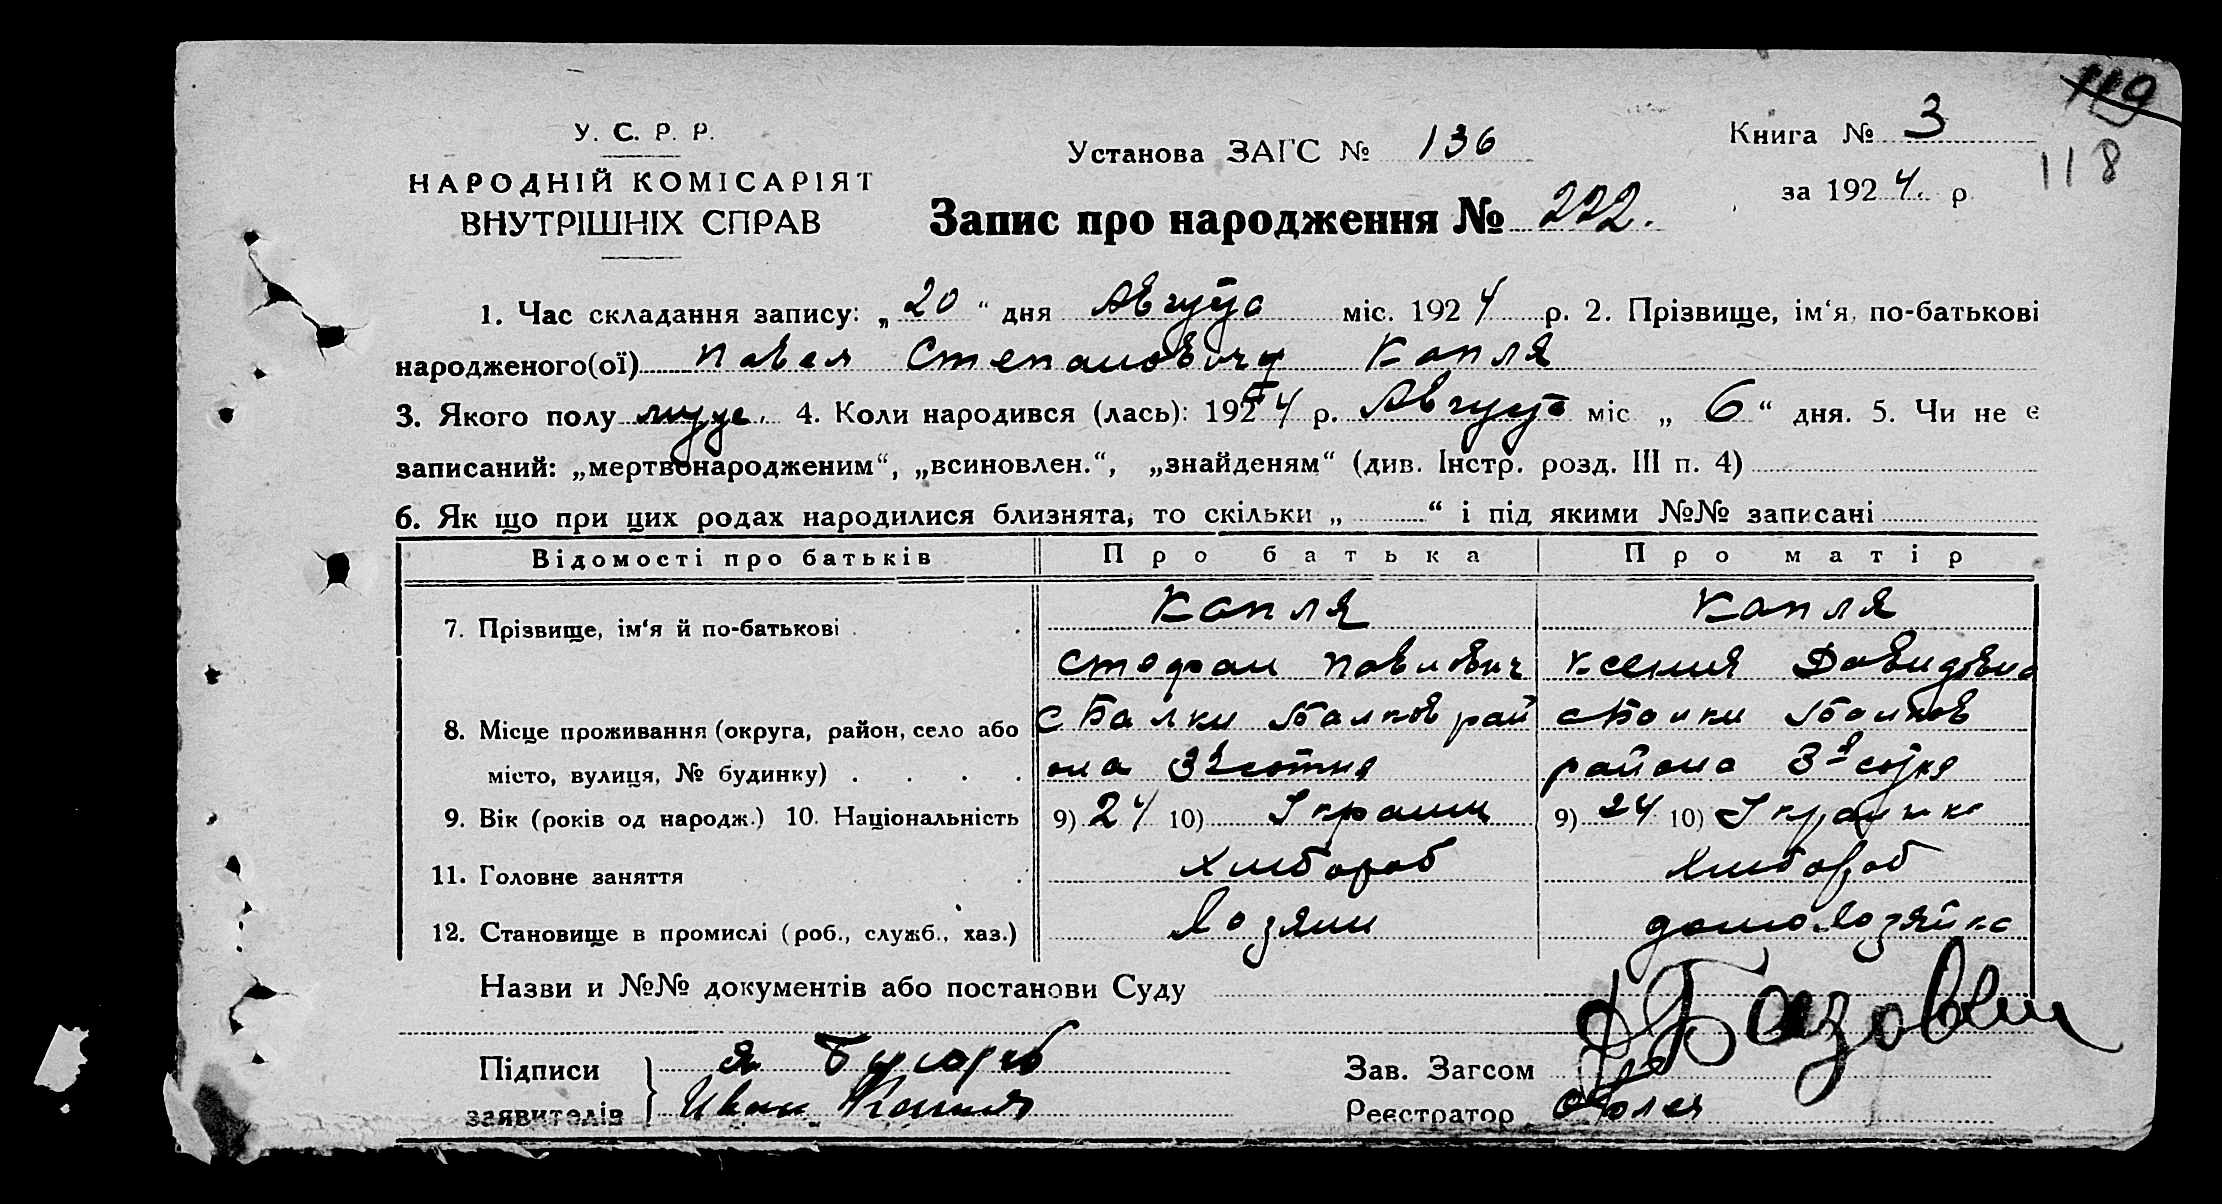 119
У. С. Р. Р.
Установа ЗАГС № 136
Книга № 3
118
НАРОДНІЙ КОМІСАРІЯТ
за 1924 р.
ВНУТРІШНІХ СПРАВ
Запис про народження № 222.
1. Час складання запису: „20“ дня Августа міс. 1924 р. 2. Прізвище, ім‘я, по-батькові
народженого(ої) Павел Степанович Капля
3. Якого полу муж. 4. Коли народився (лась): 1924 р. Август міс „6“ дня. 5. Чи не є
записаний: „мертвонародженим“, „всиновлен.“, „знайденям“ (див. Інстр. розд. III п. 4)
6. Як що при цих родах народилися близнята, то скільки „ “ і під якими №№ записані
Відомості про батьків Про батька Про матір
7. Прізвище, ім‘я й по-батькові Капля Капля
Стефан Павлович Ксения Давидовна
8. Місце проживання (округа, район, село або с Балки Балков рай с Балки Балков
місто, вулиця, № будинку) она 3я сотня района 3я сотня
9. Вік (років од народж.) 10. Національність 9) 24 10) Украин 9) 24 10) Украинка
11. Головне заняття Хлебороб Хлебороб
12. Становище в промислі (роб., служб., хаз.) Хозяин домохозяйка
Назви и №№ документів або постанови Суду
Підписи
Зав. Загсом
заявителів Иван Капля
Реєстратор